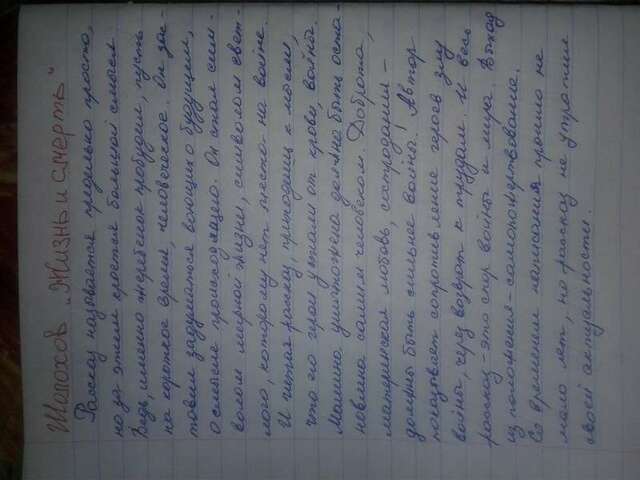 Шолохов „Жизнь и смерть"
Рассказ называется предельно просто,
но за этим кроется большой смысл.
Ведь именно жеребёнок пробудил, пусть
на короткое время, человеческое. Он зас-
тавил задуматься воюющих о будущем,
о смысле происходящего. Он стал сим-
волом мирной жизни, символом свет-
лого, которому нет места на войне.
И читая рассказ, приходишь к мысли,
что его герои устали от крови, войны.
Машина уничтожена должна быть оста-
новлена самим человеком. Доброта,
материнская любовь, сострадание –
должны быть сильнее войны! Автор
показывает сопротивление героев злу
войны, через возврат к трудам. И весь
рассказ – это спор войны и мира. Выход
из положения – самопожертвование.
Со времени написания прошло не
мало лет, но рассказ не утратил
своей актуальности.